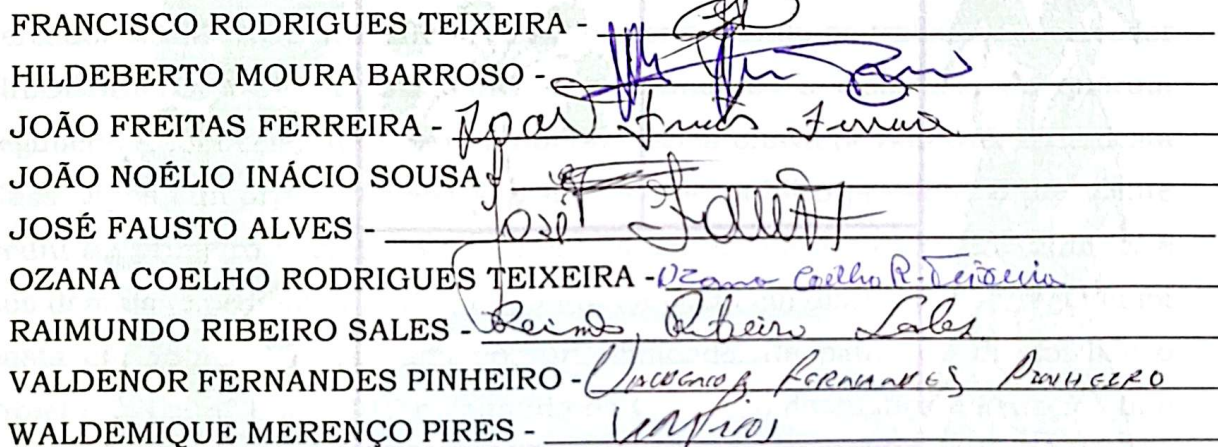 FRANCISCO RODRIGUES TEIXEIRA -
HILDEBERTO MOURA BARROSO -
JOÃO FREITAS FERREIRA - João Freitas Ferreira
JOÃO NOÉLIO INÁCIO SOUSA
JOSÉ FAUSTO ALVES - José Fausto
OZANA COELHO RODRIGUES TEIXEIRA - Ozana Coelho R. Teixeira
RAIMUNDO RIBEIRO SALES - Raimdo Ribeiro Sales
VALDENOR FERNANDES PINHEIRO - VALDENOR FERNANDES PINHEIRO
WALDEMIQUE MERENÇO PIRES -